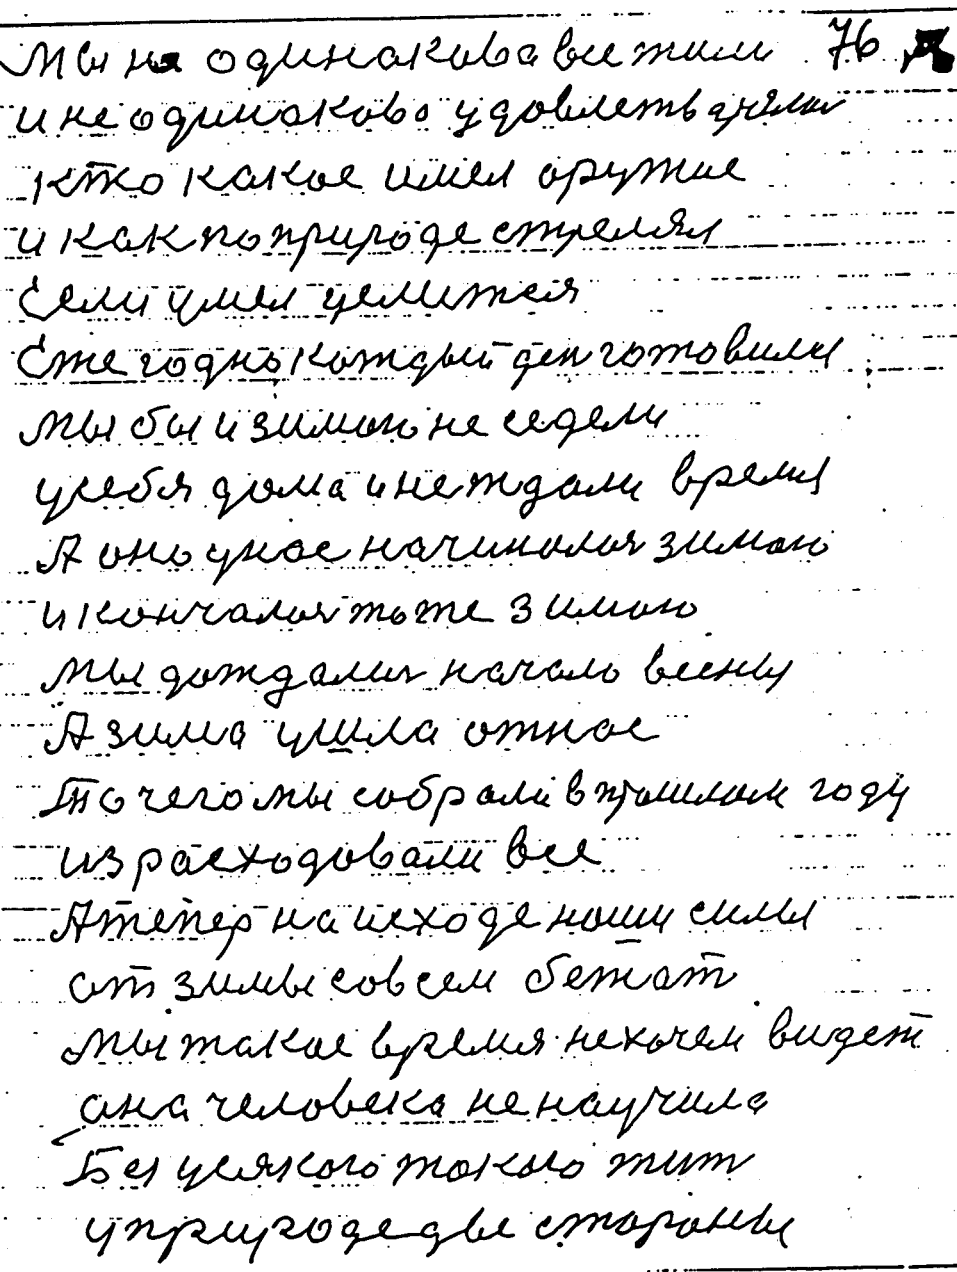 Мы на одинакова все жили 76
и не одинаково удовлетварялис
кто какое имел оружие
и как по природе стрелял
Если умел целится
Ежегодно каждый ден готовили
мы бы и зимою не седели
у себя дома и не ждали время
А оно у нас начиналося зимою
и кончалося тоже зимою
мы дождалися начало весны
А зима ушла от нас
То чего мы собрали в прошлом году
израсходовали все
А тепер на исходе наши силы
от зимы совсем бежат
мы такое время не хочем видет
ана человека не научила
Без усякого такого жит
у природе две стороны